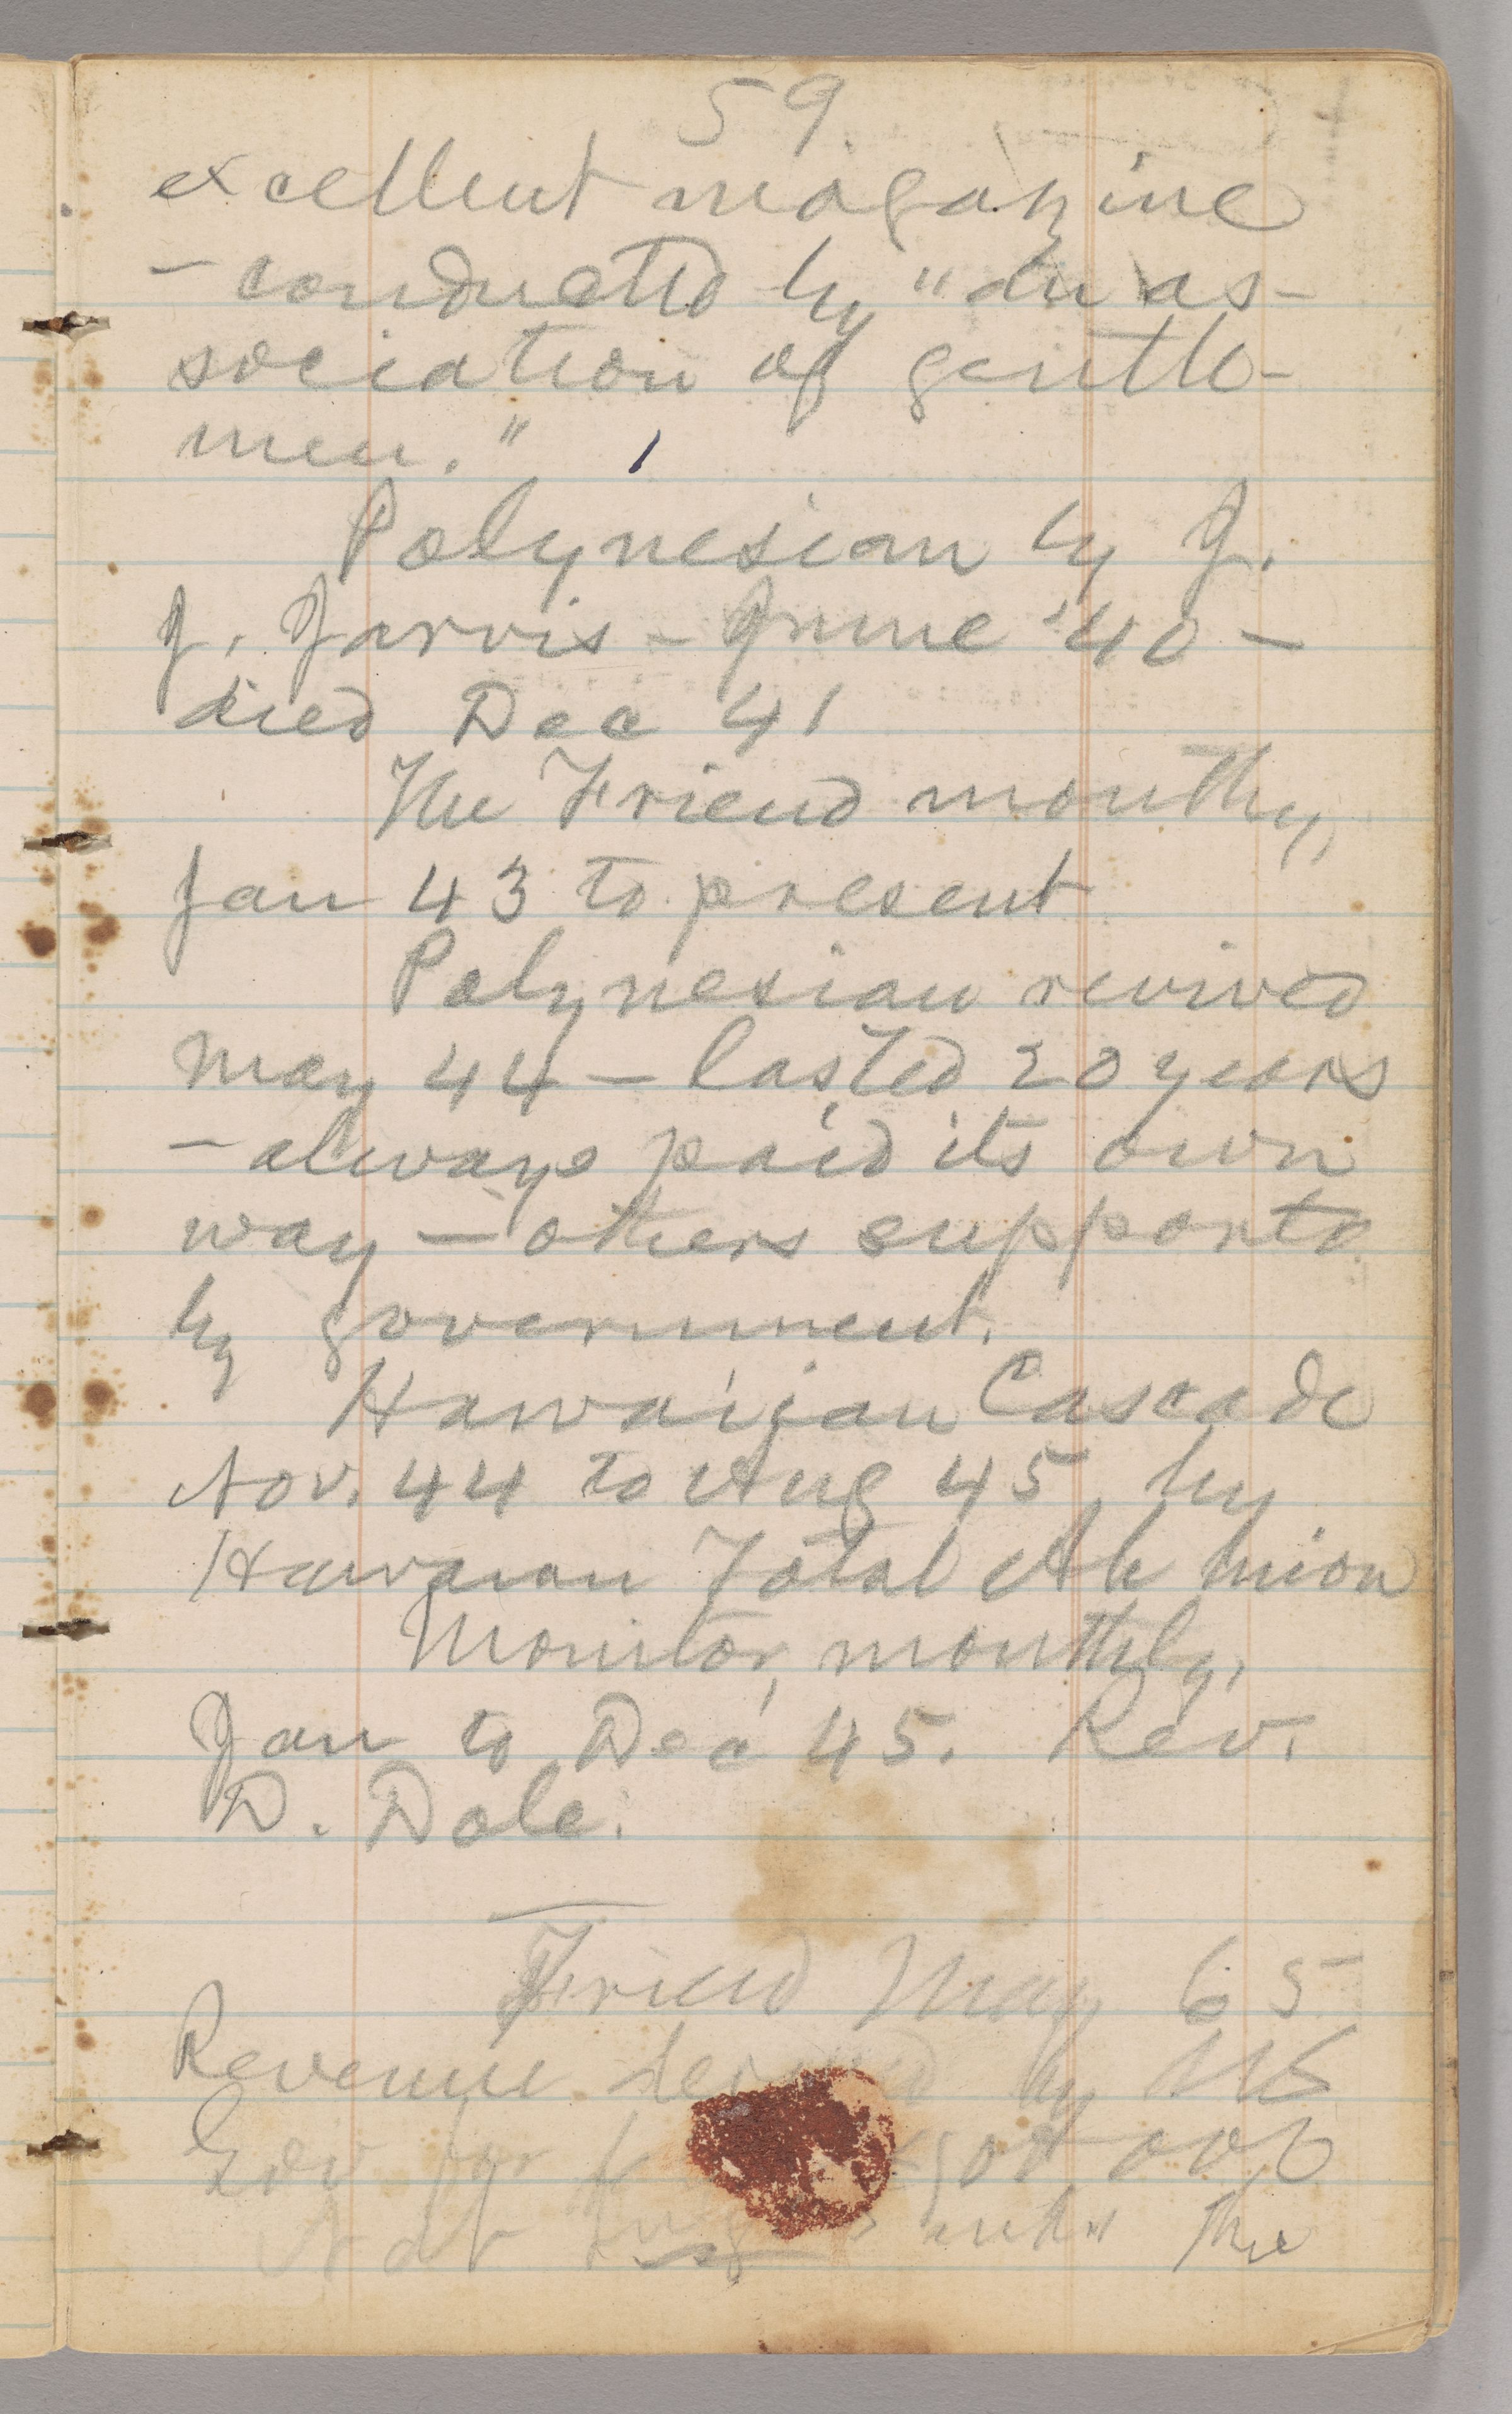 59
excellent magazine
- conducted by "an as-
sociation of gentle-
men."
Polynesian by J.
J. Jarvis - June '40 -
died Dec 41
The Friend monthly,
Jan 43 to present
Polynesian revived
May 44 - lasted 20 years
- always paid its own
way - others supportd
by government.
Hawaiian Cascade
Nov. 44 to Aug 45, by
Hawaian Total Ab Union
Monitor, monthly,
Jan to Dec 45. Rev.
D. Dole.
Friend May 65
Revenue by US
Gov for
Not the